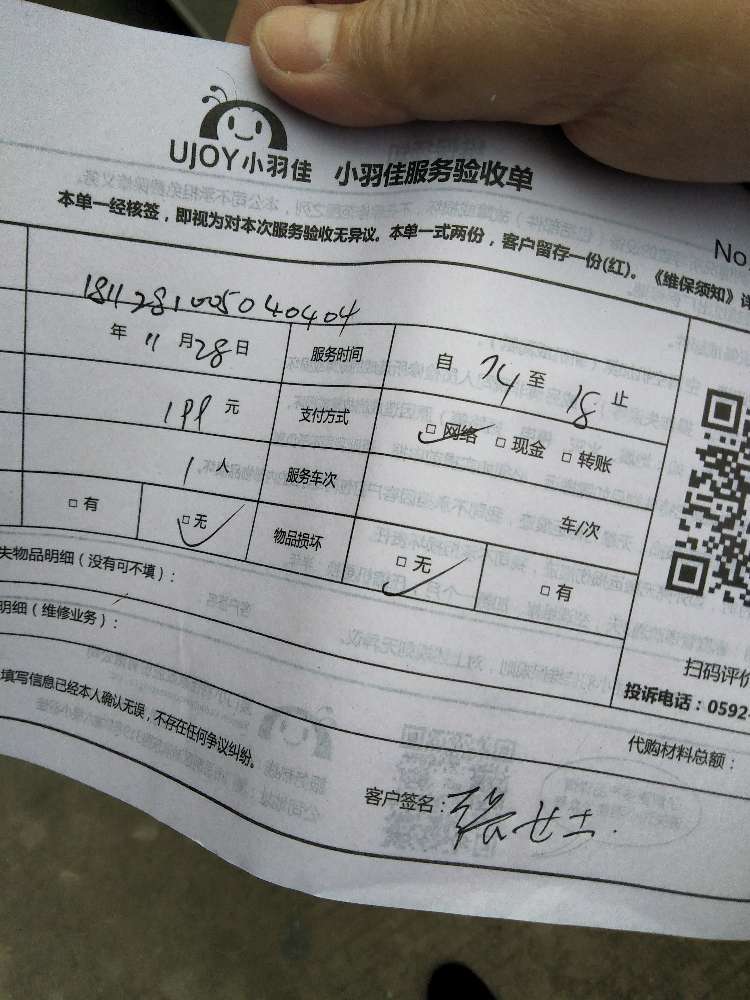 UJOY小羽佳 小羽佳服务验收单
本单一经核签，即视为对本次服务验收无异议。本单一式两份，客户留存一份(红)。《维保须知》详
No
1811281005040404
年 11 月 28 日 服务时间 自 14 至 18 止
199 元 支付方式 □ 网络 □ 现金 □ 转账
1 人 服务车次 车/次
□ 有 □ 无 物品损坏 □ 无 □ 有
失物品明细（没有可不填）：
明细（维修业务）：
扫码评价
投诉电话：0592-
填写信息已经本人确认无误，不存在任何争议纠纷。
代购材料总额：
客户签名：张女士